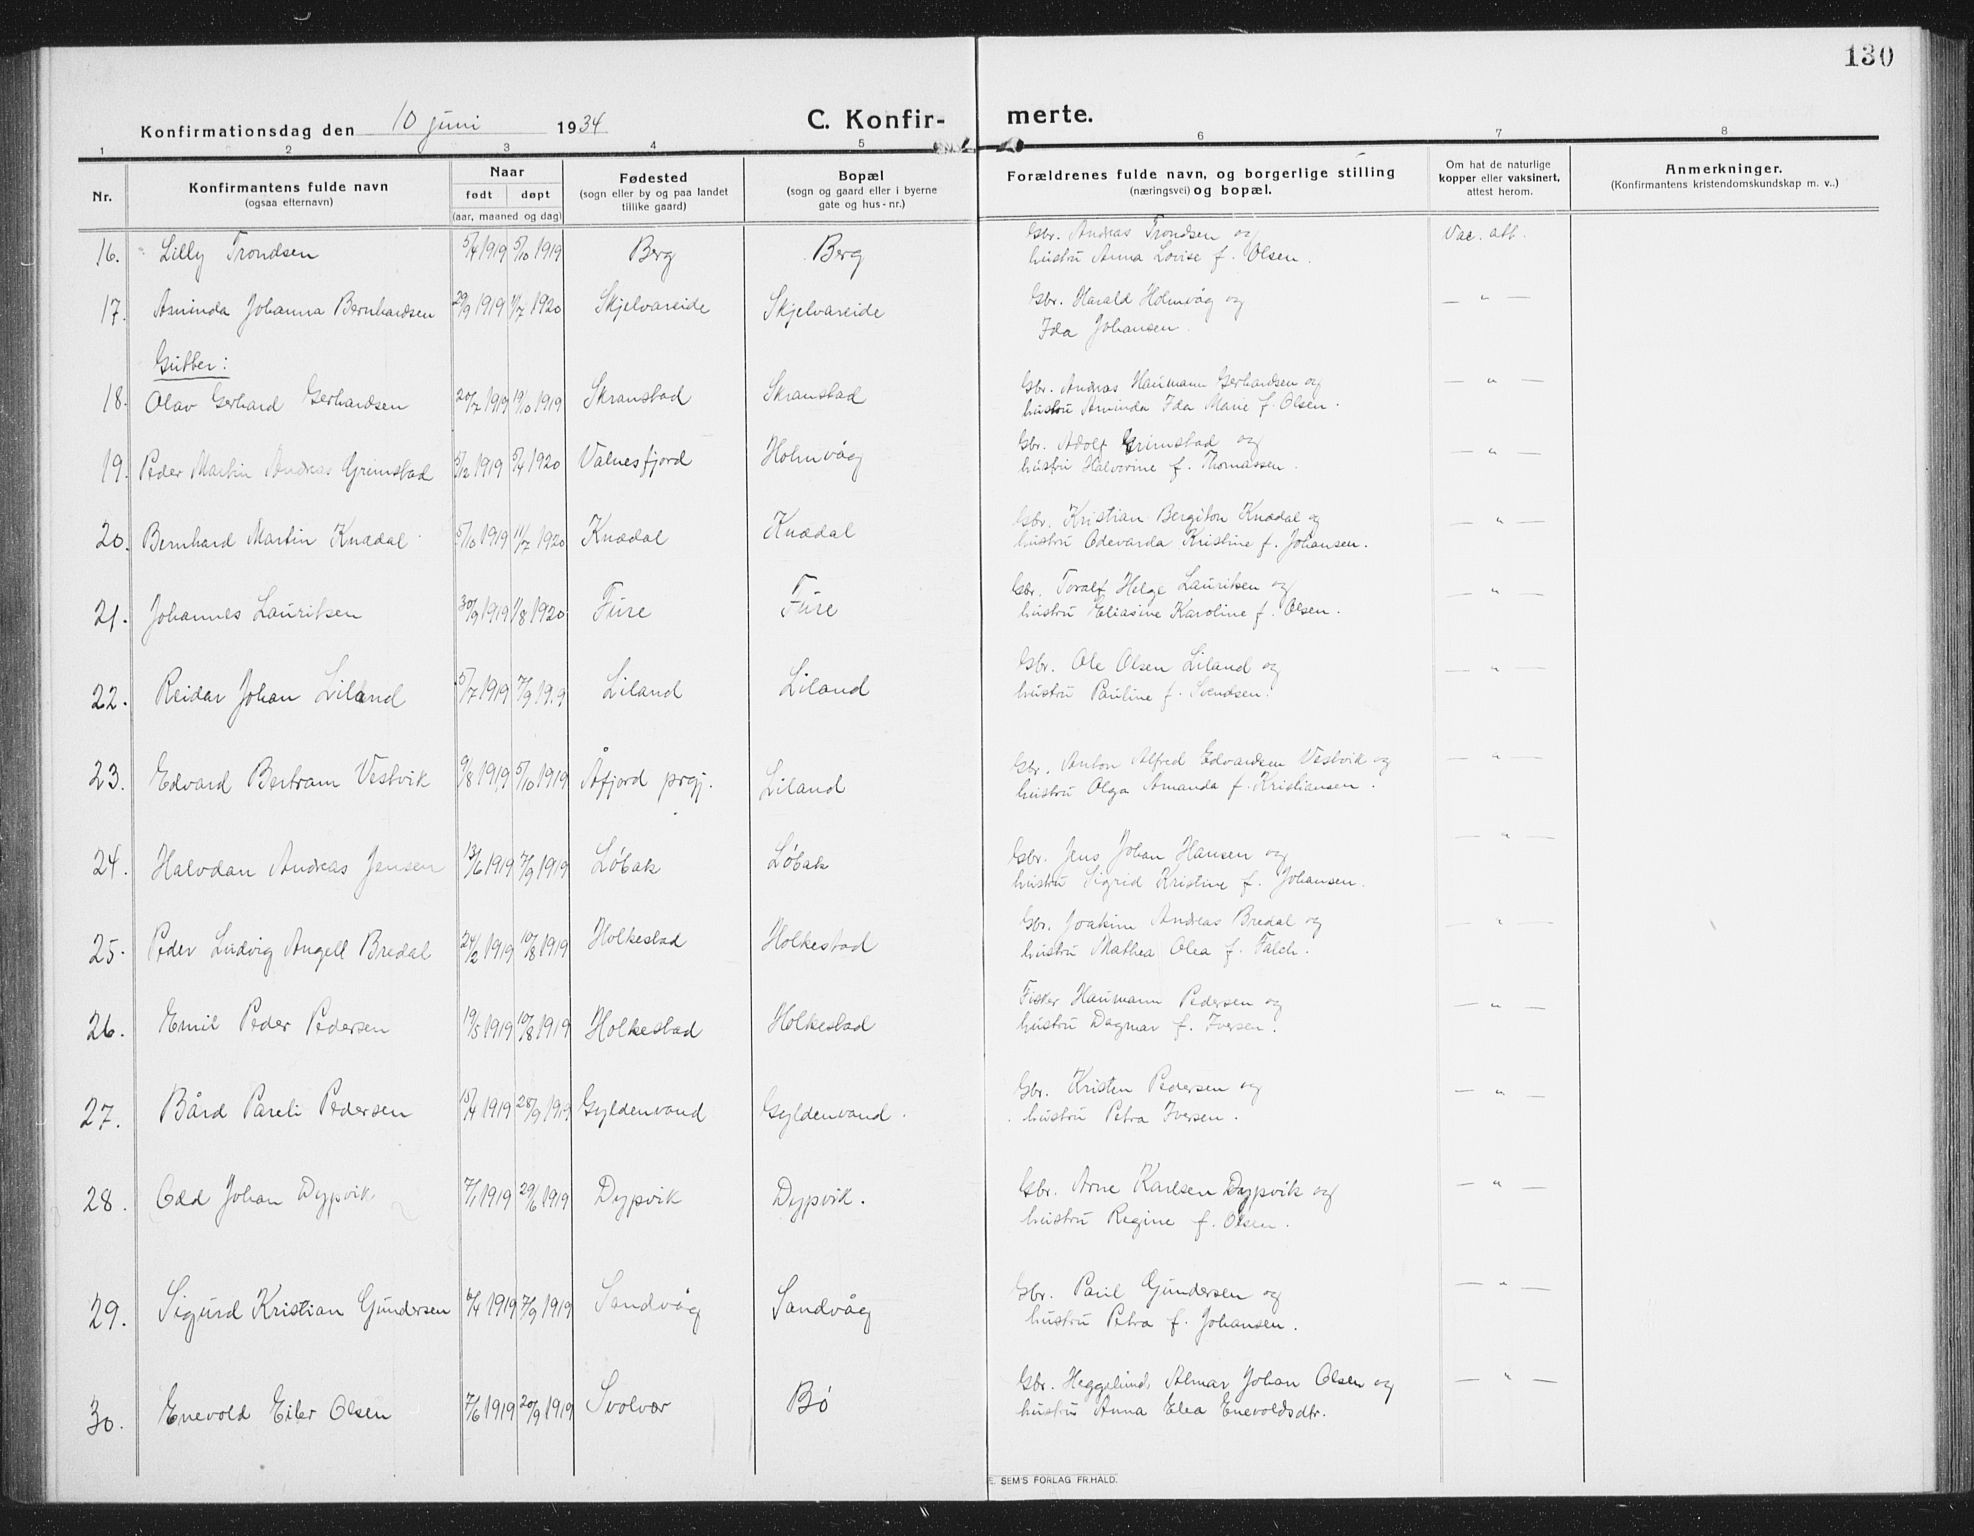 130
Konfirmationsdag den 10 juni 1934
C. Konfir- merte.
1 2 3 4 5 6 7 8
Nr.
Konfirmantens fulde navn
(ogsaa efternavn)
Naar
født døpt
(aar, maaned og dag)
Fødested
(sogn eller by og paa landet
tillike gaard)
Bopæl
(sogn og gaard eller i byerne
gate og hus-nr.)
Forældrenes fulde navn, og borgerlige stilling
(næringsvei) og bopæl.
Om hat de naturlige
kopper eller vaksinert,
attest herom.
Anmerkninger.
(Konfirmantens kristendomskundskap m. v..)
16. Lilly Trondsen 5/4 1919 5/10 1919 Berg Berg Gbr. Andreas Trondsen og Vac. att.
hustru Anna Lovise f. Olsen.
17. Aminda Johanna Bernhardsen 29/9 1919 1/7 1920 Skjelvareide Skjelvareide Gbr. Harald Holmvåg og — " —
Ida Johansen.
Gutter:
18. Olav Gerhard Gerhardsen 20/7 1919 19/10 1919 Skranstad Skranstad Gbr. Andreas Haumann Gerhardsen og — " —
hustru Aminda Ida Marie f. Olsen.
19. Peder Martin Andreas Grimstad 5/12 1919 5/4 1920 Valnesfjord Holmvåg Gbr. Adolf Grimstad og — " —
hustru Halvorine f. Thomassen.
20. Bernhard Martin Knædal 5/10 1919 11/7 1920 Knædal Knædal Gbr. Kristian Bergiton Knædal og — " —
hustru Edevarda Kristine f. Johansen.
21. Johannes Lauritsen 30/9 1919 1/8 1920 Fure Fure Gbr. Toralf Helge Lauritsen og — " —
hustru Eliasine Karoline f. Olsen.
22. Reidar Johan Liland 5/7 1919 7/9 1919 Liland Liland Gbr. Ole Olsen Liland og — " —
hustru Pauline f. Svendsen.
23. Edvard Bertram Vestvik 9/8 1919 5/10 1919 Åfjord prgj. Liland Gbr. Anton Alfred Edvardsen Vestvik og — " —
hustru Olga Amanda f. Kristiansen.
24. Halvdan Andreas Jensen 13/6 1919 7/9 1919 Løbak Løbak Gbr. Jens Johan Hansen og — " —
hustru Sigrid Kristine f. Johansen.
25. Peder Ludvig Angell Bredal 24/2 1919 10/8 1919 Holkestad Holkestad Gbr. Joakim Andreas Bredal og — " —
hustru Mathea Olea f. Falch.
26. Emil Peder Pedersen 19/5 1919 10/8 1919 Holkestad Holkestad Fisker Haumann Pedersen og — " —
hustru Dagmar f. Iversen.
27. Bård Pareli Pedersen 15/4 1919 28/9 1919 Gyldenvand Gyldenvand. Gbr. Kristen Pedersen og — " —
hustru Petra Iversen.
28. Odd Johan Dypvik 7/1 1919 29/6 1919 Dypvik Dypvik. Gbr. Arne Karlsen Dypvik og — " —
hustru Regine f. Olsen.
29. Sigurd Kristian Gundersen 6/4 1919 7/9 1919 Sandvåg Sandvåg Gbr. Paul Gundersen og — " —
hustru Petra f. Johansen.
30. Enevold Eiler Olsen 7/6 1919 20/9 1919 Svolvær Bø Gbr. Heggelund Almar Johan Olsen og — " —
hustru Anna Elea Enevoldsdtr.
E. SEM'S FORLAG FR.HALD.